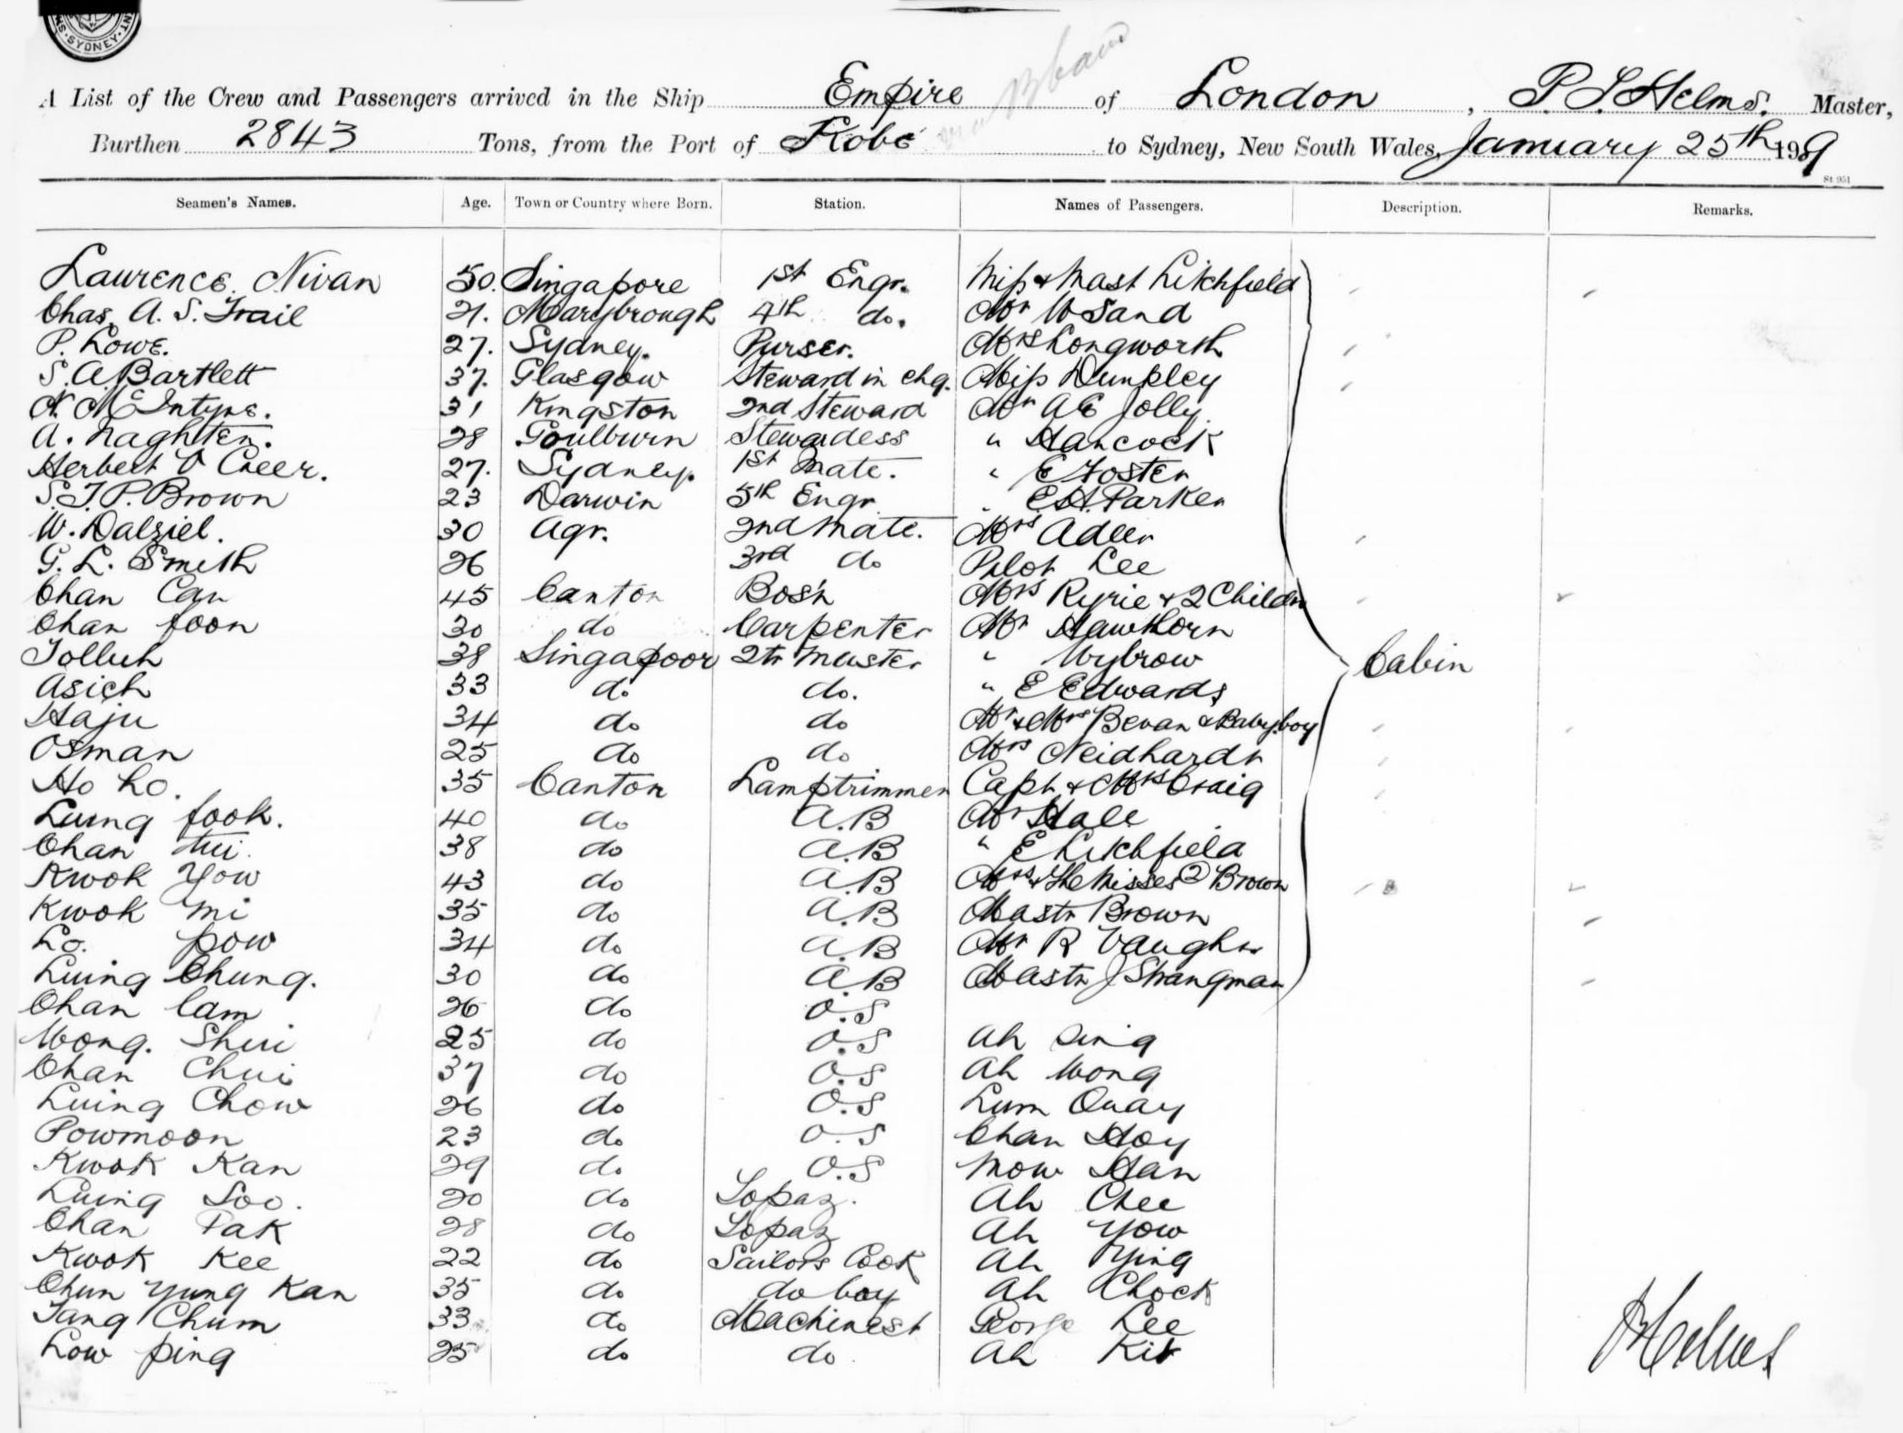 SYDNEY
A List of the Crew and Passengers arrived in the Ship Empire of London, P. T. Helms. Master,
Burthen 2843 Tons, from the Port of Kobe to Sydney, New South Wales, January 25th 1909
St 951
Seamen's Names. Age. Town or Country where Born. Station. Names of Passengers. Description. Remarks.
Laurence Nivan 50. Singapore 1st Engr. Miss & Mast Litchfield
Chas. A. S. Trail 21. Marybrough 4th do. Mr W Sand
P. Lowe. 27. Sydney. Purser. Mrs Longworth
S. A. Bartlett 37. Glasgow Steward in chg. Miss Dunkley
N. McIntyre. 31 Kingston 2nd Steward Mr A E Jolly
A. Naghten. 28 Goulburn Stewardess " Hancock
Herbert V Creer. 27. Sydney. 1st Mate. " E Foster
S. T. P. Brown 23 Darwin 5th Engr. " E. H. Parker
W. Dalziel. 30 Ayr. 2nd Mate. Mrs Adler
G. L. Smith 26 3rd do Pilot Lee
Chan Cau 45 Canton Bos'n Mrs Ryrie & 2 Childn
Chan foon 30 do Carpenter Mr Hawthorn
Tolluh 38 Singapoor 2tr Master " Wybrow Cabin
Asich 33 do do. " E Edwards
Haju 34 do do Mr & Mrs Bevan & Baby boy
Osman 25 do do Mrs Neidhardt
Ho Lo. 35 Canton Lamptrimmer Capt & Mrs Craig
Luing fook. 40 do A.B Mr Hall
Chan tui. 38 do A.B " E Litchfield
Kwok Yow 43 do A.B Mrs & The Misses 2 Brown
Kwok mi 35 do A.B Mastr Brown
Lo. pow 34 do A.B Mr R Vaughn
Luing Chung. 30 do A.B Mastr J Strangman
Chan lam 26 do O.S
Wong. Shui 25 do O.S Ah Sing
Chan Chui 37 do O.S Ah Wong
Luing Chow 26 do O.S Lum Quay
Powmoon 23 do O.S Chan Hoy
Kwok Kan 29 do O.S Mow Han
Luing Soo. 20 do Topaz. Ah Chee
Chan Pak 28 do Topaz Ah Yow
Kwok Kee 22 do Sailors Cook Ah Ying
Chun Yung Kan 35 do do boy Ah Chock
Tang Chum 33 do Machinest George Lee
Low ping 25 do do. Ah Kit